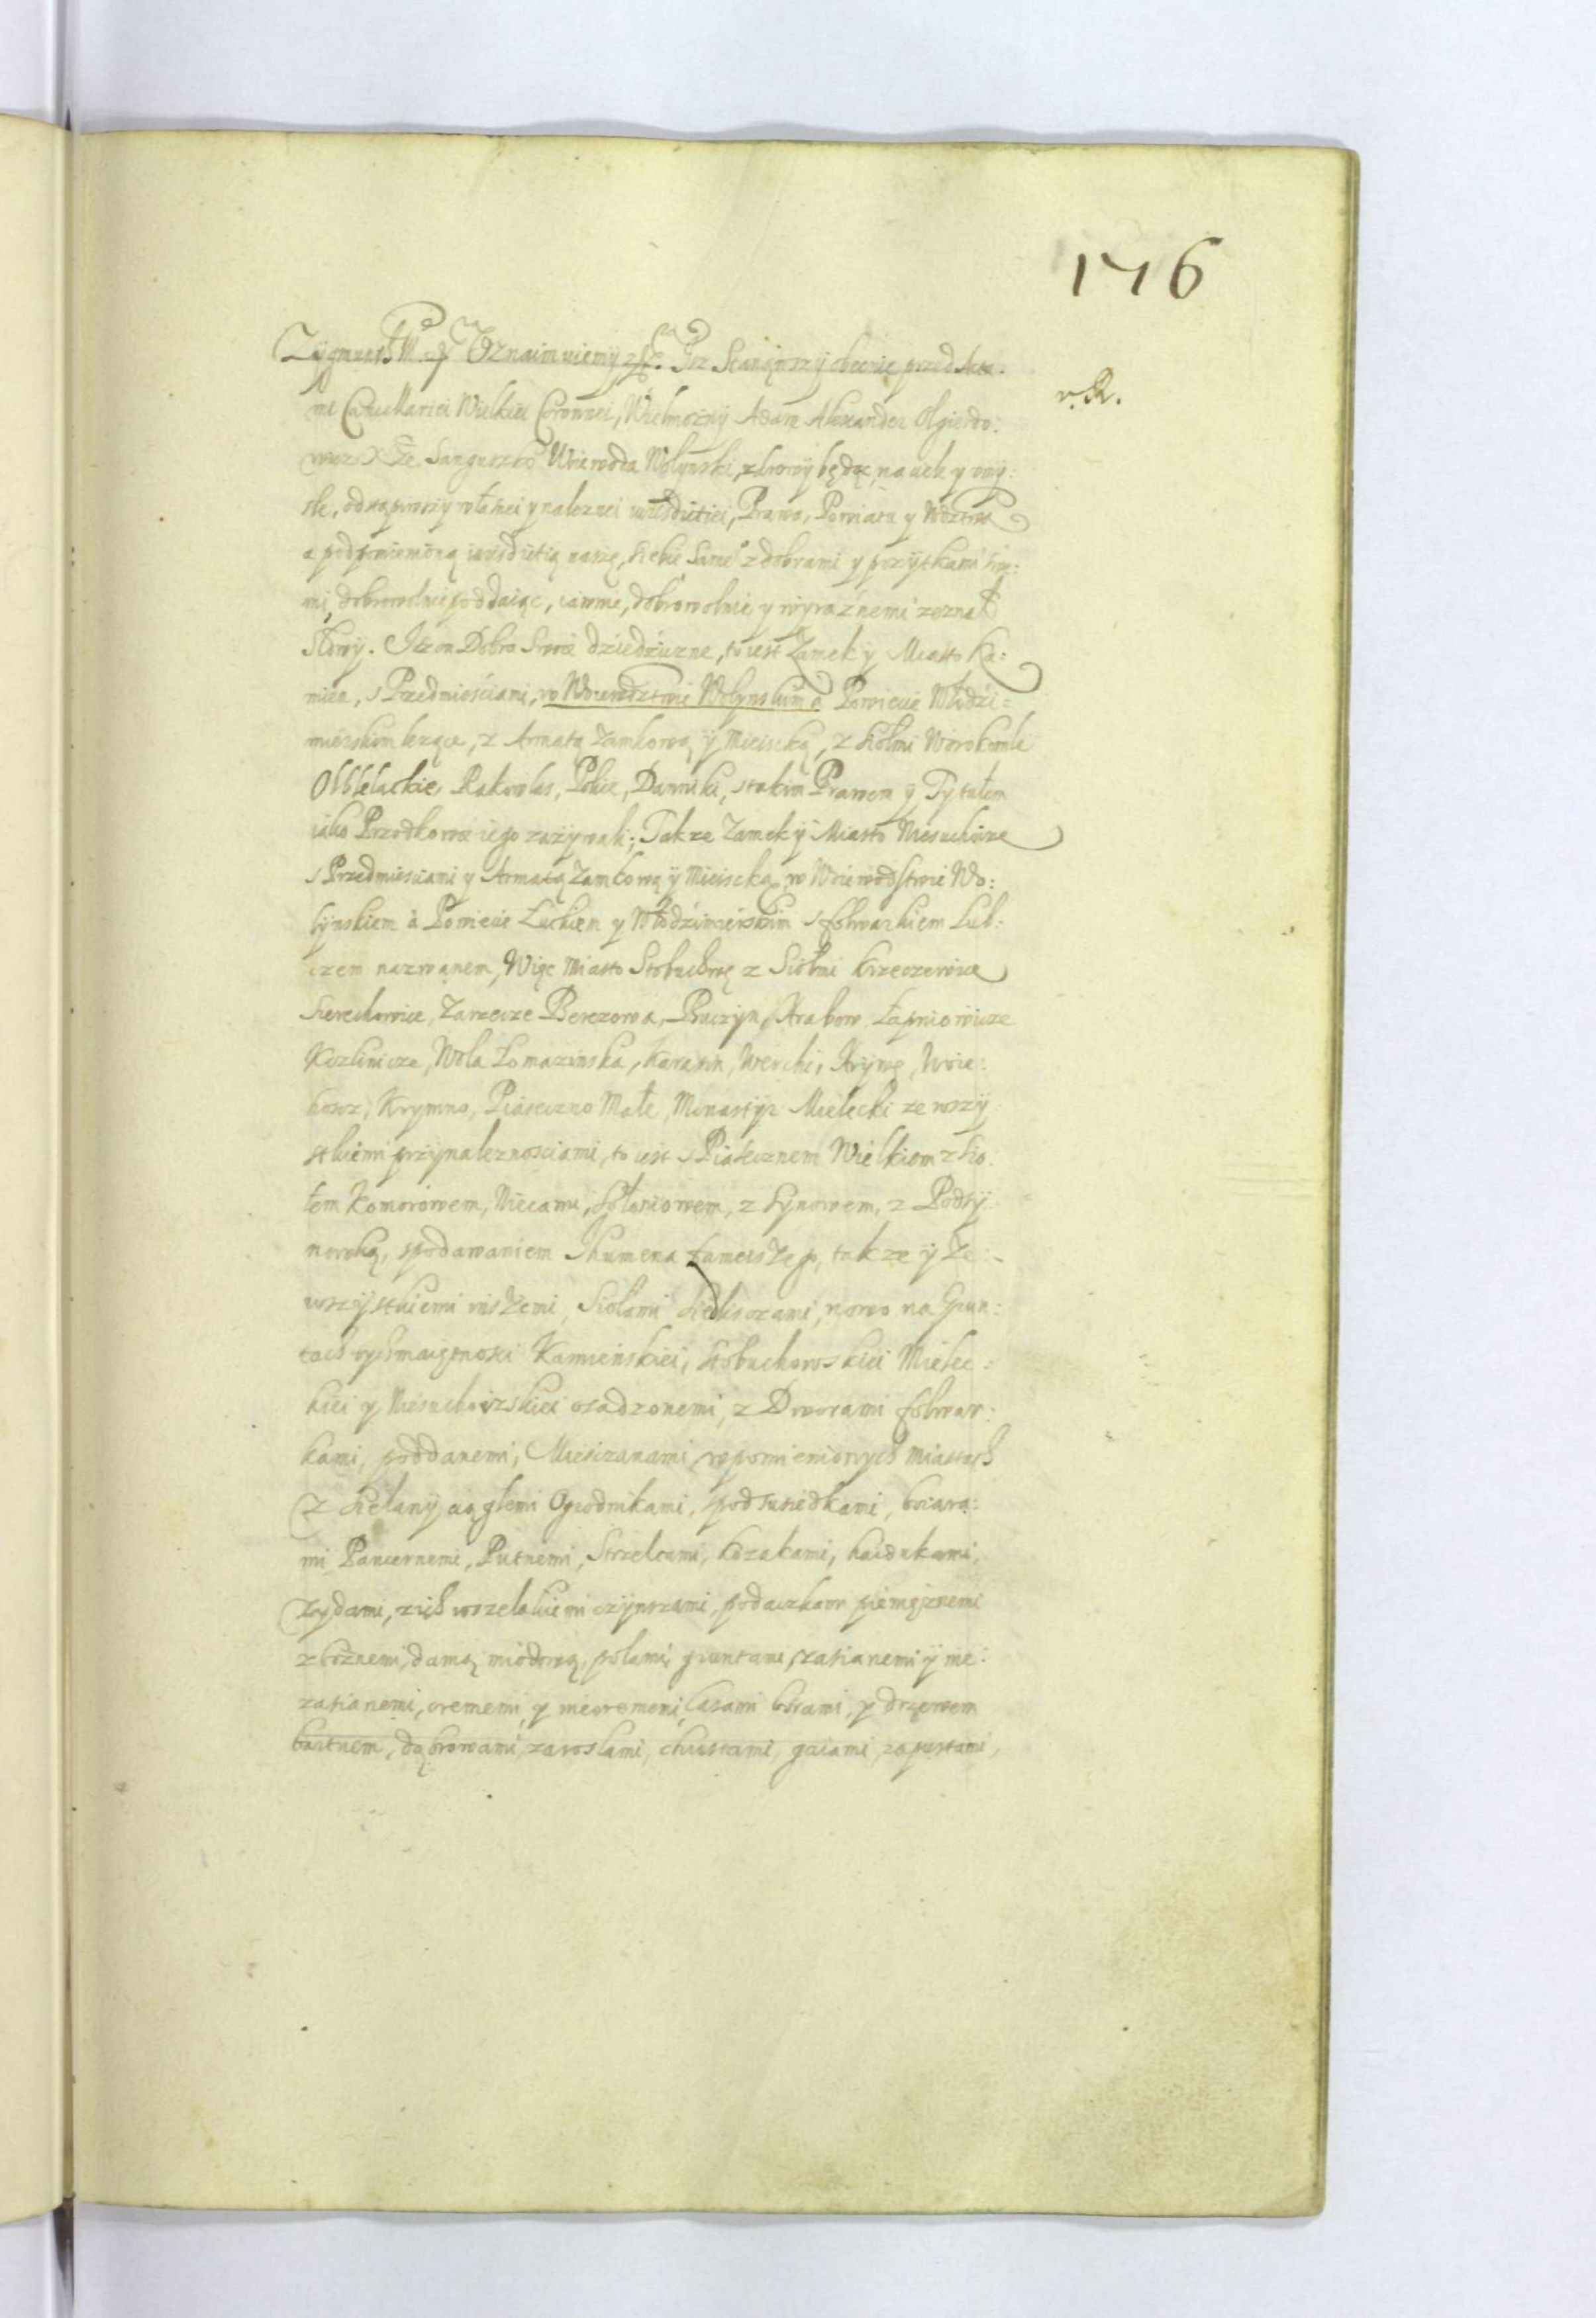 146
Zÿgmunt Oznaimuiemÿ Isz Stanąwszÿ obecnie przed Akta:
mi Canællariei Wielkiei Coronnei, Wielmoznÿ Adam Alexander Olgierdo:
wicz XZe Sanguszko Woiewoda Wołynski, zdrowÿ będąc na ciele y vmÿ:
v. R.
sle, odstąpiwszÿ własnei y naleznei iurisdictiei, Prawa, Powiatu y Wdztwa
a pod pomienioną iurisdictią naszę, siebie samego z dobrami y pozÿtkami swe:
mi dobrowolnie poddaiąc, iawnie, dobrowolnie y wyraźnemi zeznał
słowÿ. Iz on Dobra swoie dziedziczne, to iest Zamek ÿ Miasto Ka:
mien, s Przedmiesciami, w Woiewodztwie Wołynskim a Powiecie Włodzi=
mierskim lezące, z Armatą Zamkową ÿ Mieiscką, z siołmi Worokomle
Olbleladkie, Rakowlas, Police, Davniki, s takim Prawem ÿ Tytułem
iako Przodkowie iego zazÿwali; Takze Zamek ÿ Miasto Niesuchoize
s Przedmiesciami y Armatą Zamkową ÿ Mieiscką, w Woiewodstwie Wo:
łynskiem a Powiecie Łuckiem y Włodzimierskim s folwarkiem Lub:
czem nazwanem, Więc Miasto Stobuchwę z Siołmi Krzeczewice
Sierechowice, Zarzecze Berezowa, Pniczyn, Hrabow Łapniowicze
Kozlinicze, Wola Łomazinska, Karasin, Wierchi, Hrÿwę, Woie:
hoscz, Krymno, Piaseczno Małe, Monastÿr Mielecki ze wszÿ
stkiemi przÿnaleznosciami, to iest s Piasecznem Wielkiem z sio:
łem Komorowem, Niecami, Sołoniowem, z Synowem, z Podsÿ
nowką, s podawaniem Ihumena tameisZego, takze ÿ Ze:
wszÿstkiemi insZemi, Siołami siedliszami, nowo na Grun:
tach tych maiętnosci Kamieńskiei, Stobuchowskiei Mielec:
kiei y Niesuchoizskiei osadzonemi, z Dworami folwar:
kami, poddanemi, Miesczanami w pomienionych Miastach
z Sielanÿ ciągłemi Ogrodnikami, podsusiedkami, boiara:
mi Pancernemi, Putnemi, Strzelcami, kozakami, haidukami,
Zÿdami, z ich wszelakiemi czÿnszami, podaczkami pieniężnemi
zboznemi, danią miodową, polami, gruntami, zasianemi ÿ nie:
zasianemi, oremimi y nieoremimi, lasami borami, y drzewem
bartnem, dąbrowami, zaroslami, chrostami, gaiami, zapustami,